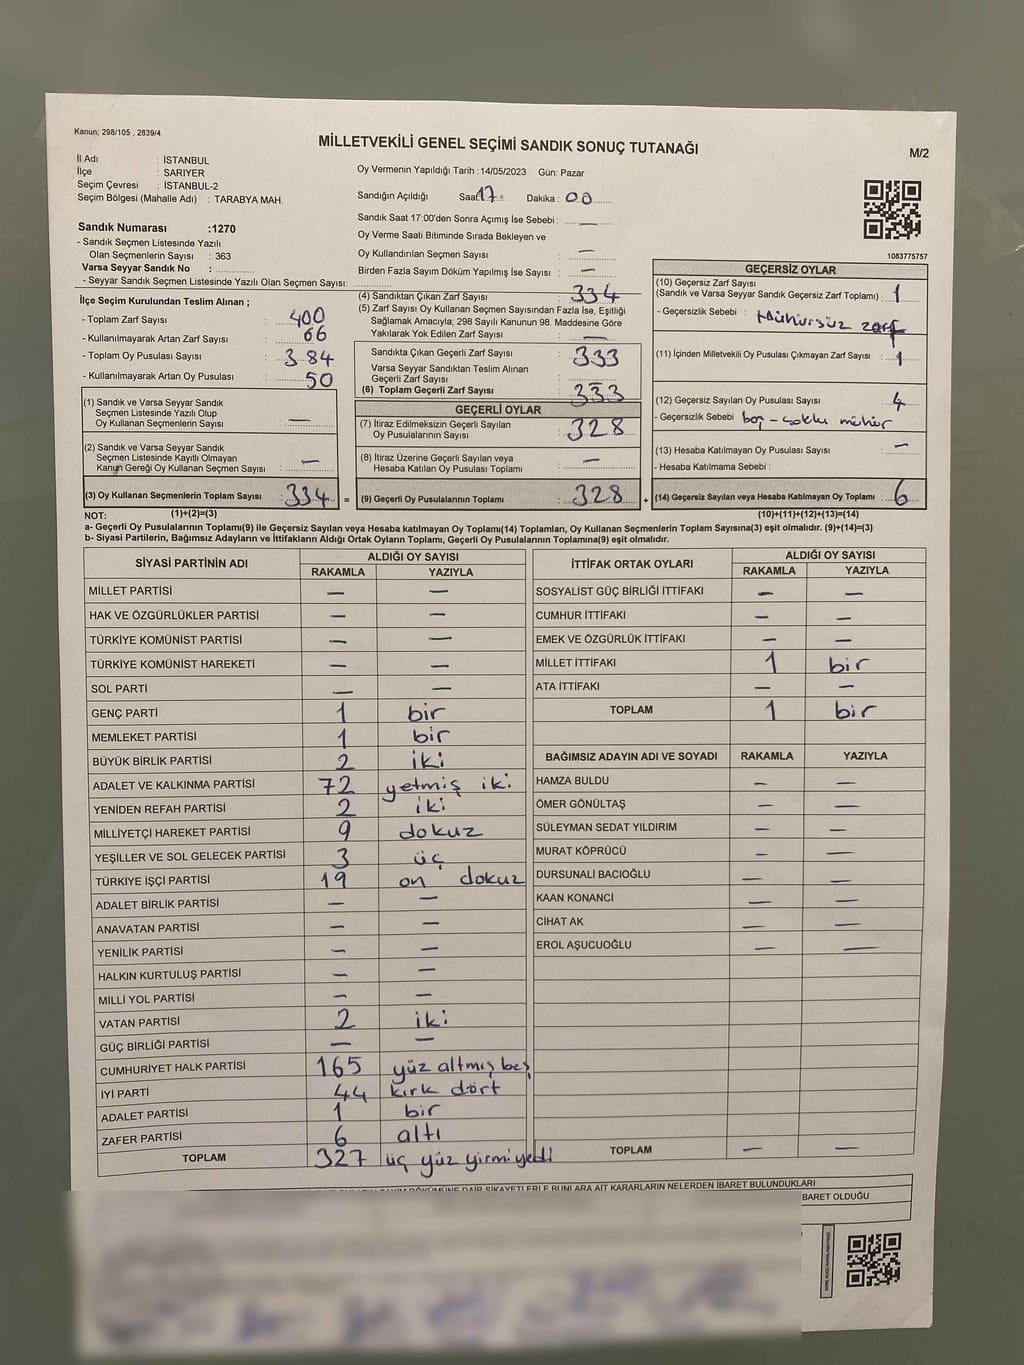 Kanun: 298/105 , 2839/4
MİLLETVEKİLİ GENEL SEÇİMİ SANDIK SONUÇ TUTANAĞI
M/2
İl Adı : İSTANBUL
İlçe : SARIYER
Seçim Çevresi : İSTANBUL-2
Seçim Bölgesi (Mahalle Adı) : TARABYA MAH.
Oy Vermenin Yapıldığı Tarih :14/05/2023 Gün: Pazar
Sandığın Açıldığı Saat 17 Dakika : 00
Sandık Saat 17:00'den Sonra Açımış İse Sebebi : —
Oy Verme Saati Bitiminde Sırada Bekleyen ve
Oy Kullandırılan Seçmen Sayısı : —
Birden Fazla Sayım Döküm Yapılmış İse Sayısı : —
1083775757
Sandık Numarası :1270
- Sandık Seçmen Listesinde Yazılı
Olan Seçmenlerin Sayısı : 363
Varsa Seyyar Sandık No :
- Seyyar Sandık Seçmen Listesinde Yazılı Olan Seçmen Sayısı:
İlçe Seçim Kurulundan Teslim Alınan ;
- Toplam Zarf Sayısı : 400
- Kullanılmayarak Artan Zarf Sayısı : 66
- Toplam Oy Pusulası Sayısı : 384
- Kullanılmayarak Artan Oy Pusulası : 50
(1) Sandık ve Varsa Seyyar Sandık
Seçmen Listesinde Yazılı Olup
Oy Kullanan Seçmenlerin Sayısı : —
(2) Sandık ve Varsa Seyyar Sandık
Seçmen Listesinde Kayıtlı Olmayan
Kanun Gereği Oy Kullanan Seçmen Sayısı : —
(3) Oy Kullanan Seçmenlerin Toplam Sayısı : 334 =
(4) Sandıktan Çıkan Zarf Sayısı : 334
(5) Zarf Sayısı Oy Kullanan Seçmen Sayısından Fazla İse, Eşitliği
Sağlamak Amacıyla; 298 Sayılı Kanunun 98. Maddesine Göre
Yakılarak Yok Edilen Zarf Sayısı : —
Sandıkta Çıkan Geçerli Zarf Sayısı : 333
Varsa Seyyar Sandıktan Teslim Alınan
Geçerli Zarf Sayısı :
(6) Toplam Geçerli Zarf Sayısı : 333
GEÇERLİ OYLAR
(7) İtiraz Edilmeksizin Geçerli Sayılan
Oy Pusulalarının Sayısı : 328
(8) İtiraz Üzerine Geçerli Sayılan veya
Hesaba Katılan Oy Pusulası Toplamı : —
(9) Geçerli Oy Pusulalarının Toplamı : 328 +
GEÇERSİZ OYLAR
(10) Geçersiz Zarf Sayısı
(Sandık ve Varsa Seyyar Sandık Geçersiz Zarf Toplamı) : 1
- Geçersizlik Sebebi : Mühürsüz zarf
(11) İçinden Milletvekili Oy Pusulası Çıkmayan Zarf Sayısı : 1
(12) Geçersiz Sayılan Oy Pusulası Sayısı : 4
- Geçersizlik Sebebi boş - çoklu mühür
(13) Hesaba Katılmayan Oy Pusulası Sayısı : —
- Hesaba Katılmama Sebebi :
(14) Geçersiz Sayılan veya Hesaba Katılmayan Oy Toplamı : 6
NOT: (1)+(2)=(3) (10)+(11)+(12)+(13)=(14)
a- Geçerli Oy Pusulalarının Toplamı(9) ile Geçersiz Sayılan veya Hesaba katılmayan Oy Toplamı(14) Toplamları, Oy Kullanan Seçmenlerin Toplam Sayısına(3) eşit olmalıdır. (9)+(14)=(3)
b- Siyasi Partilerin, Bağımsız Adayların ve İttifakların Aldığı Ortak Oyların Toplamı, Geçerli Oy Pusulalarının Toplamına(9) eşit olmalıdır.
SİYASİ PARTİNİN ADI ALDIĞI OY SAYISI
RAKAMLA YAZIYLA
MİLLET PARTİSİ — —
HAK VE ÖZGÜRLÜKLER PARTİSİ — —
TÜRKİYE KOMÜNİST PARTİSİ — —
TÜRKİYE KOMÜNİST HAREKETİ — —
SOL PARTİ — —
GENÇ PARTİ 1 bir
MEMLEKET PARTİSİ 1 bir
BÜYÜK BİRLİK PARTİSİ 2 iki
ADALET VE KALKINMA PARTİSİ 72 yetmiş iki
YENİDEN REFAH PARTİSİ 2 iki
MİLLİYETÇİ HAREKET PARTİSİ 9 dokuz
YEŞİLLER VE SOL GELECEK PARTİSİ 3 üç
TÜRKİYE İŞÇİ PARTİSİ 19 on dokuz
ADALET BİRLİK PARTİSİ — —
ANAVATAN PARTİSİ — —
YENİLİK PARTİSİ — —
HALKIN KURTULUŞ PARTİSİ — —
MİLLİ YOL PARTİSİ — —
VATAN PARTİSİ 2 iki
GÜÇ BİRLİĞİ PARTİSİ — —
CUMHURİYET HALK PARTİSİ 165 yüz altmış beş
İYİ PARTİ 44 kırk dört
ADALET PARTİSİ 1 bir
ZAFER PARTİSİ 6 altı
TOPLAM 327 üç yüz yirmi yedi
İTTİFAK ORTAK OYLARI ALDIĞI OY SAYISI
RAKAMLA YAZIYLA
SOSYALİST GÜÇ BİRLİĞİ İTTİFAKI — —
CUMHUR İTTİFAKI — —
EMEK VE ÖZGÜRLÜK İTTİFAKI — —
MİLLET İTTİFAKI 1 bir
ATA İTTİFAKI — —
TOPLAM 1 bir
BAĞIMSIZ ADAYIN ADI VE SOYADI RAKAMLA YAZIYLA
HAMZA BULDU — —
ÖMER GÖNÜLTAŞ — —
SÜLEYMAN SEDAT YILDIRIM — —
MURAT KÖPRÜCÜ — —
DURSUNALİ BACIOĞLU — —
KAAN KONANCİ — —
CİHAT AK — —
EROL AŞUCUOĞLU — —
TOPLAM — —
DAİR ŞİKAYETLERLE BUNLARA AİT KARARLARIN NELERDEN İBARET BULUNDUKLARI
BARET OLDUĞU